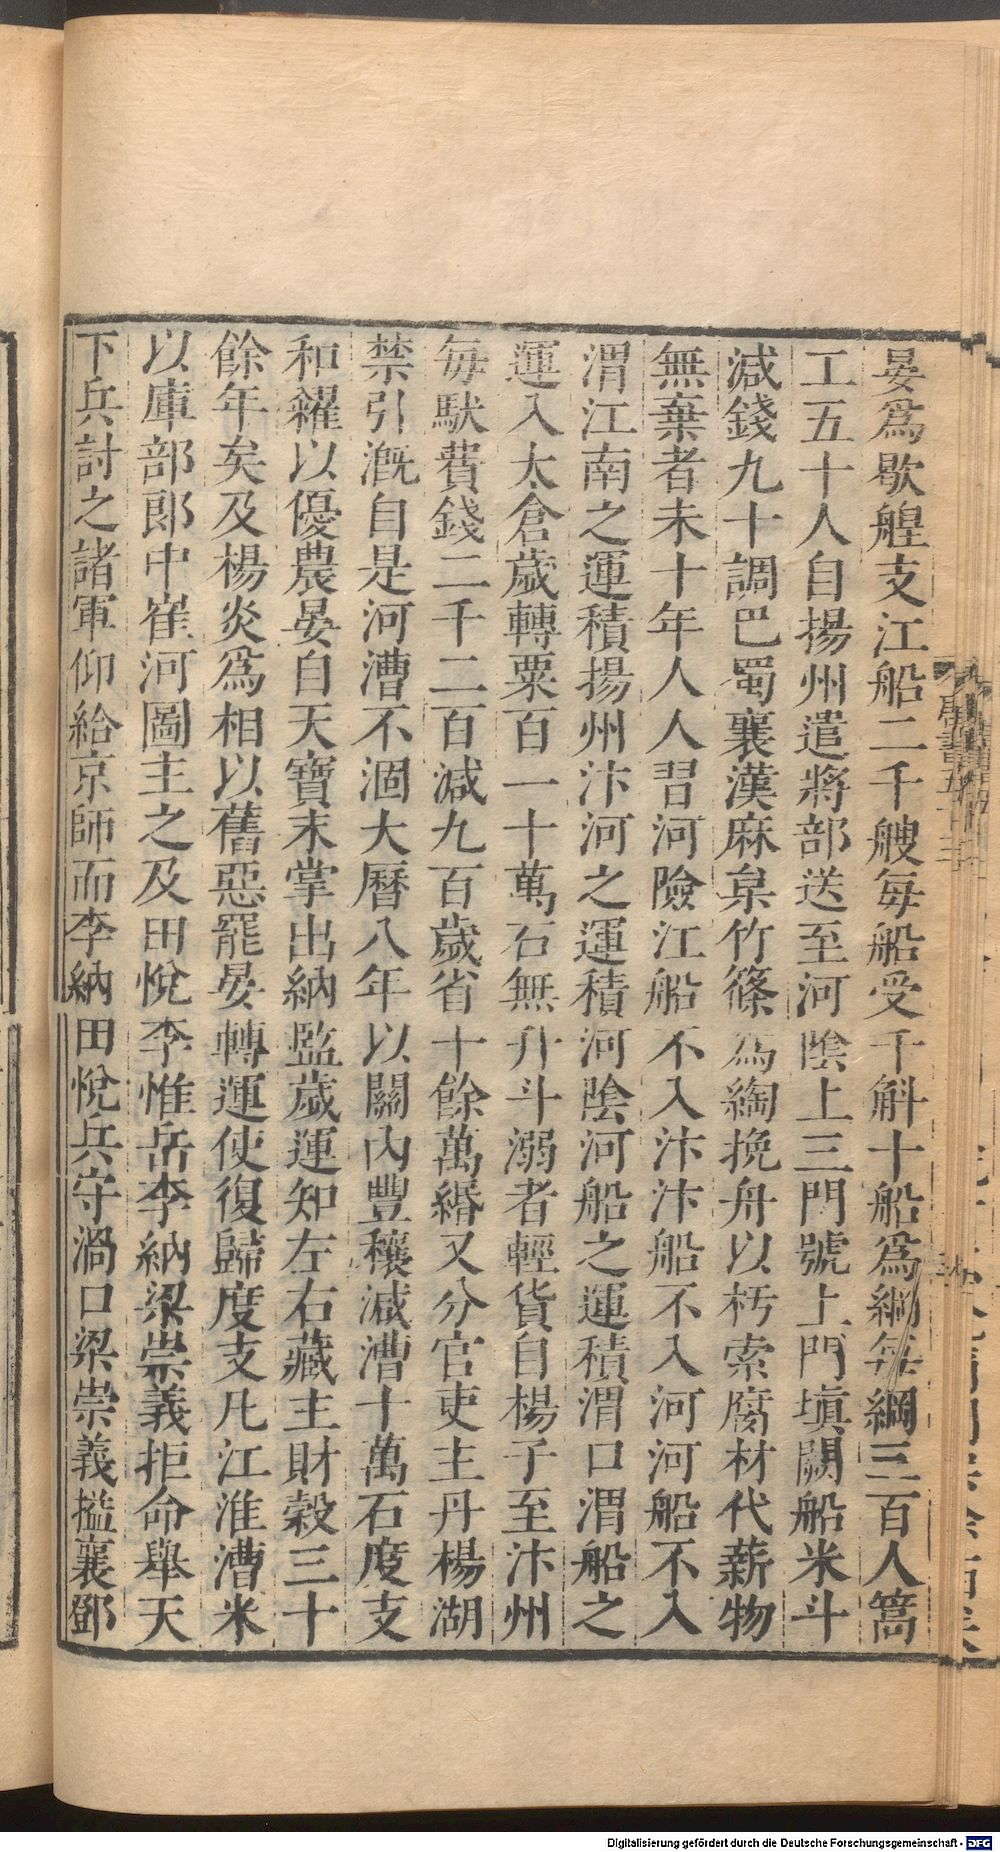 晏爲歇艎支江船二千艘每船受千斛十船爲綱每綱三百人篙
工五十人自揚州遣將部送至河陰上三門號上門塡闕船米斗
減錢九十調巴蜀襄漢麻枲竹篠爲綯挽舟以朽索腐材代薪物
無棄者未十年人人習河險江船不入汴汴船不入河河船不入
渭江南之運積揚州汴河之運積河陰河船之運積渭口渭船之
運入太倉歲轉粟百一十萬石無升斗溺者輕貨自楊子至汴州
每馱費錢二千二百減九百歲省十餘萬緡又分官吏主丹楊湖
禁引漑自是河漕不涸大曆八年以關內豐穰減漕十萬石度支
和糴以優農晏自天寶末掌出納監歲運知左右藏主財穀三十
餘年矣及楊炎爲相以舊惡罷晏轉運使復歸度支凡江淮漕米
以庫部郎中崔河圖主之及田悅李惟岳李納梁崇義拒命舉天
下兵討之諸軍仰給京師而李納田悅兵守渦口梁崇義搤襄鄧
唐書五十三
Digitalisierung gefördert durch die Deutsche Forschungsgemeinschaft - DFG